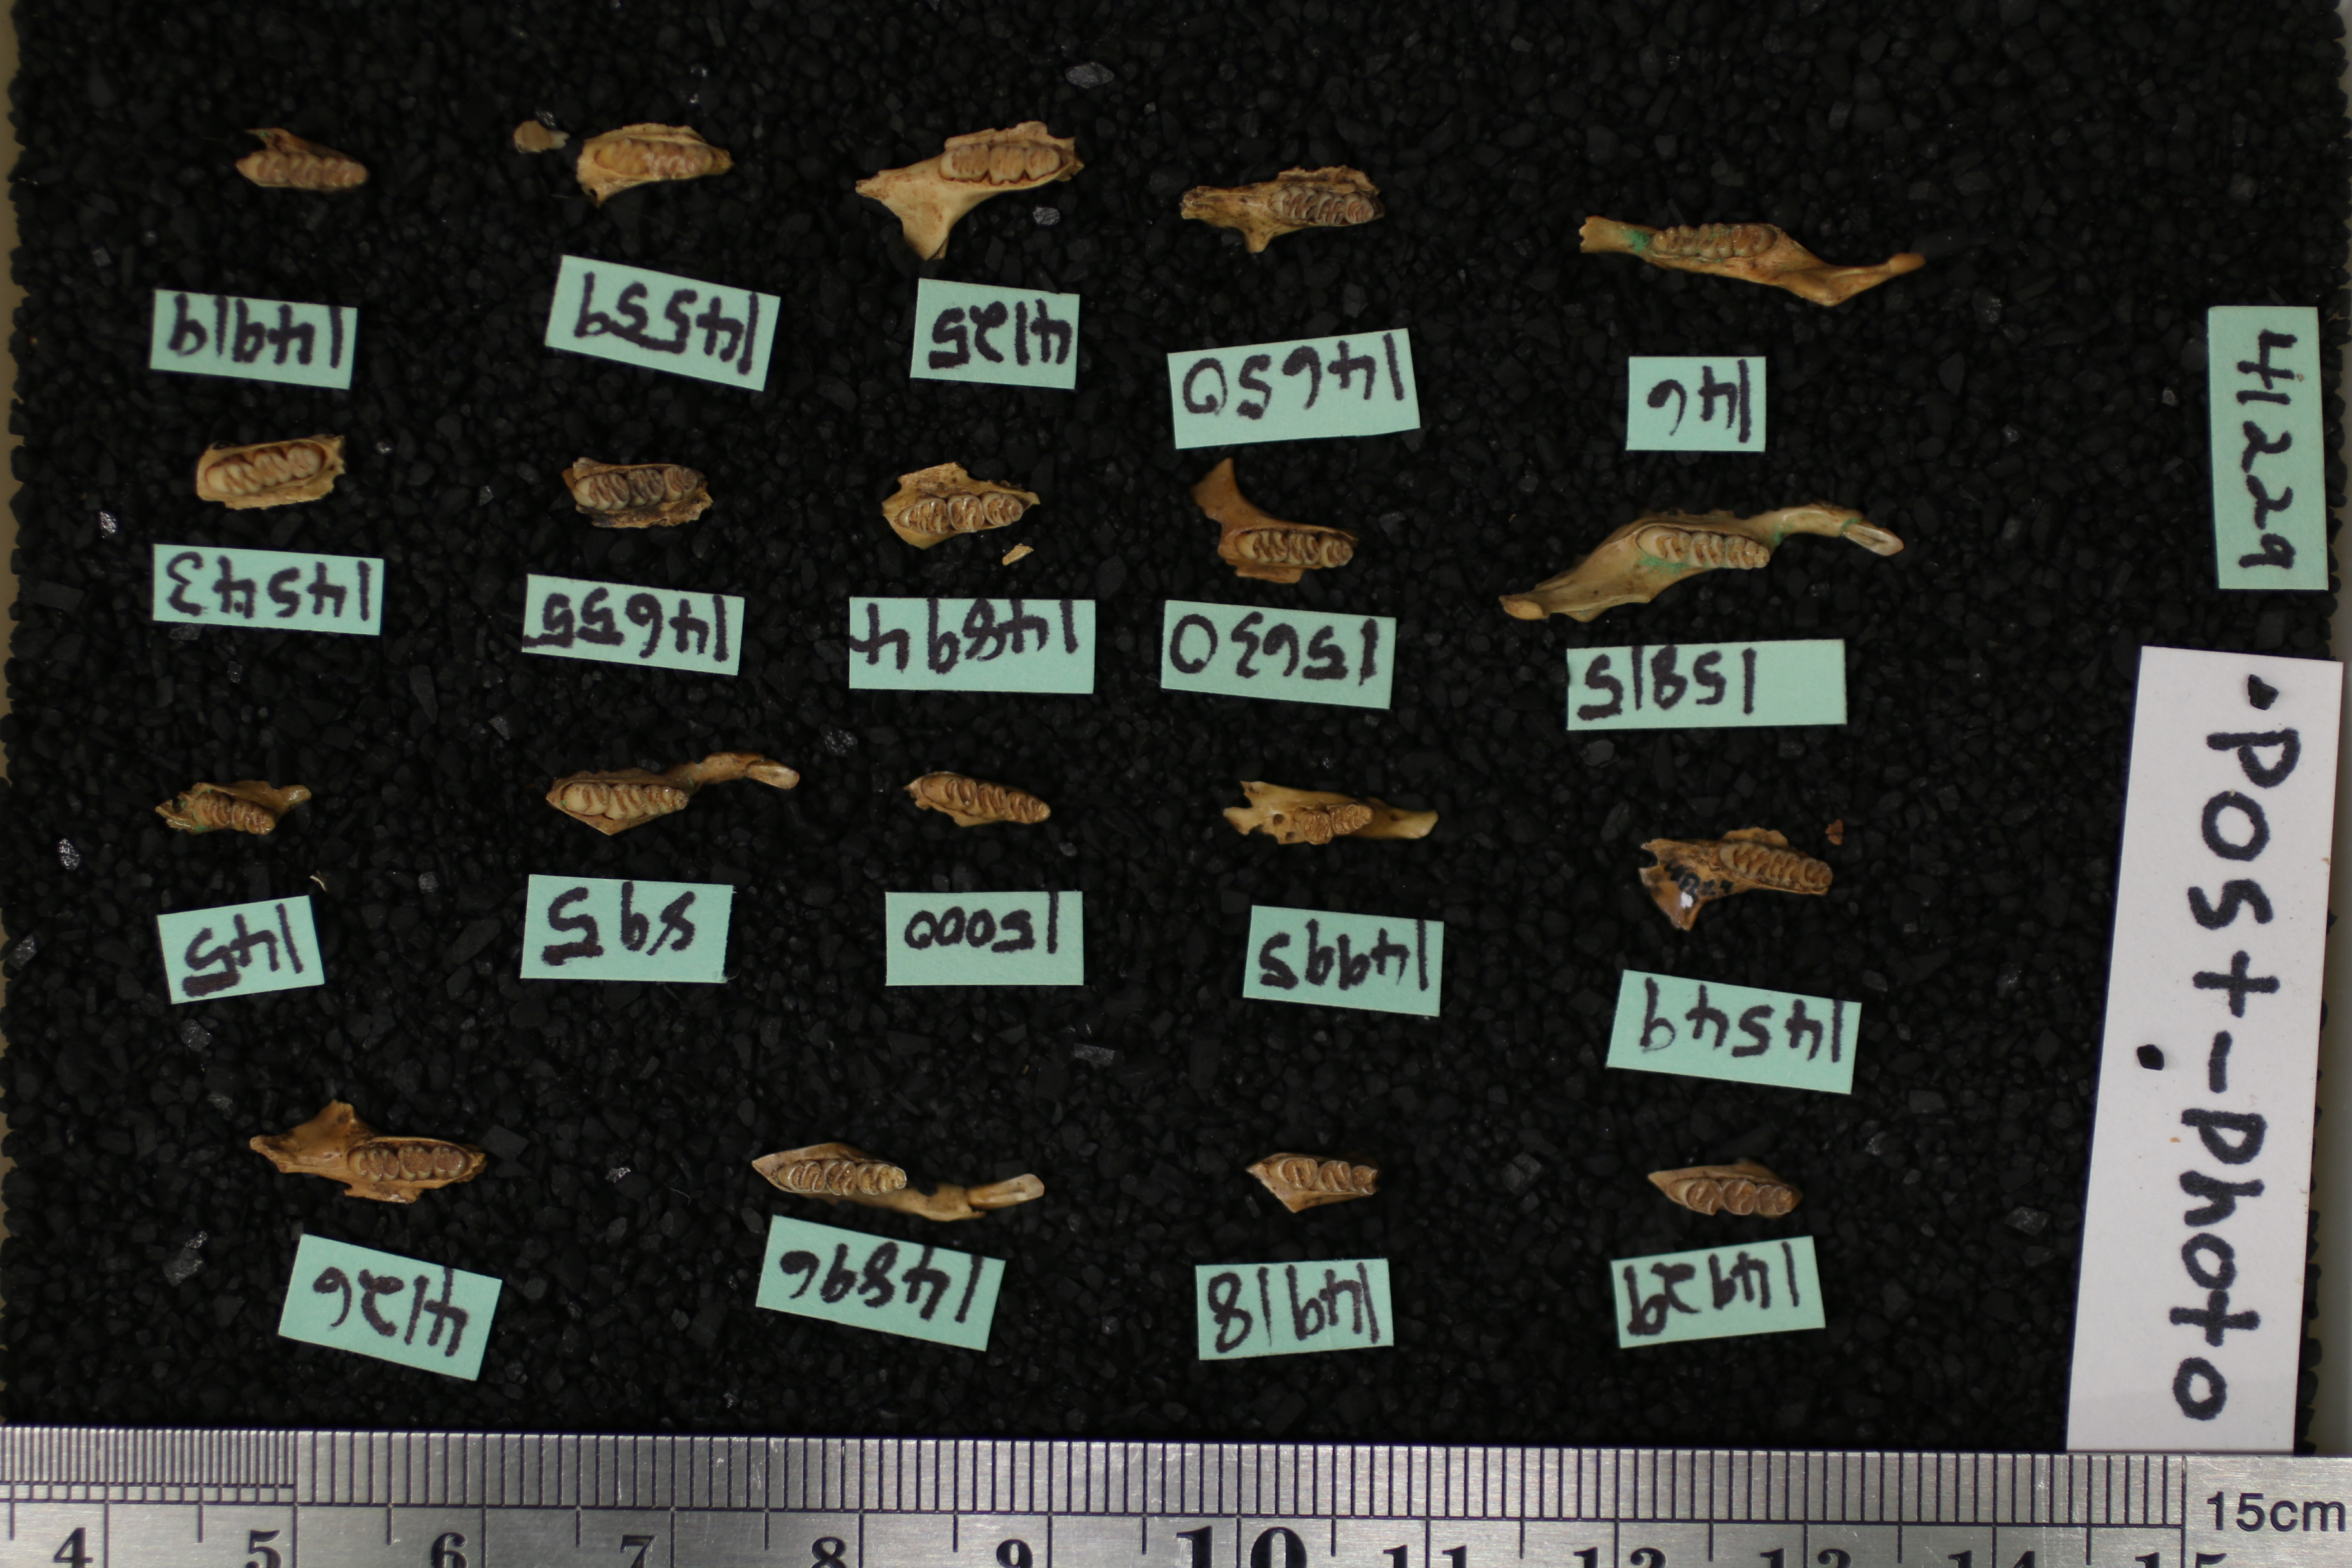 14919
14559
4125
14650
146
41229
14543
14655
14894
15630
15815
145
895
15000
14995
14549
4126
14896
14918
14929
Post-photo
15cm
4 5 6 7 8 9 10 11 12 13 14 15